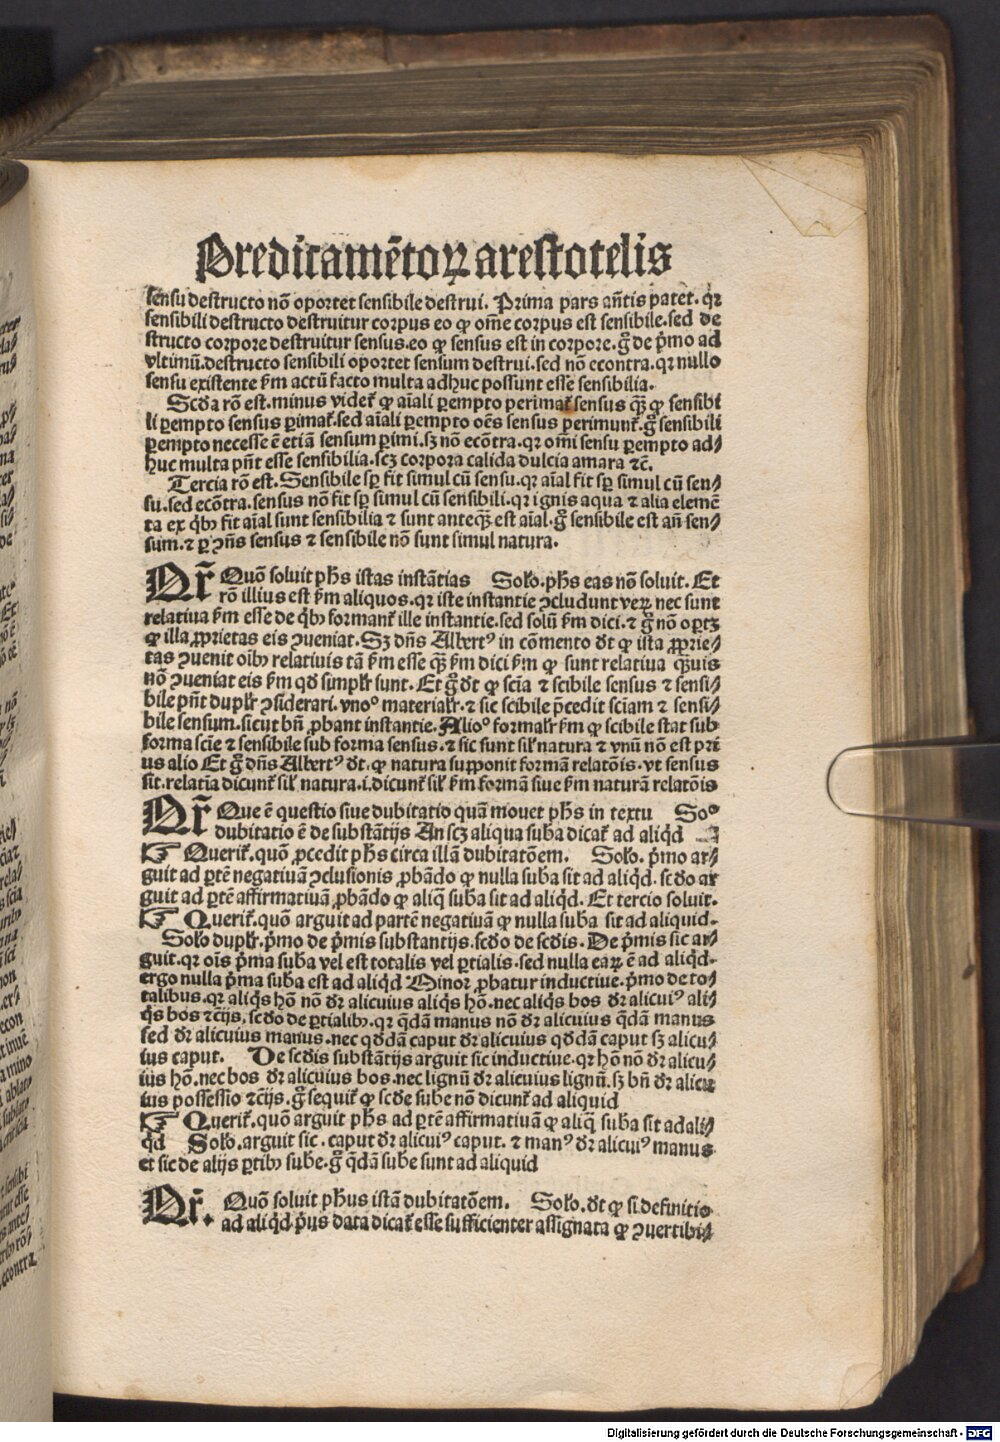 Predicamẽtoꝝ arestotelis
sensu destructo nõ oportet sensibile destrui. Prima pars añtis patet. qꝛ
sensibili destructo destruitur corpus eo ꝙ om̃e corpus est sensibile. sed de
structo corpore destruitur sensus. eo ꝙ sensus est in corpore. g̃ de p̃mo ad
vltimũ. destructo sensibili oportet sensum destrui. sed nõ econtra. qꝛ nullo
sensu existente ẜm actũ facto multa adhuc possunt esse sensibilia.
Scd̃a rõ est. minus videt̃ ꝙ aĩali ꝑempto perimat̃ sensus q̃ꝫ ꝙ sensibi
li ꝑempto sensus ꝑimat̃. sed aĩali ꝑempto oẽs sensus perimunt̃. g̃ sensibili
ꝑempto necesse ẽ etiã sensum ꝑimi. sꝫ nõ ecõtra. qꝛ om̃i sensu ꝑempto ad⸗
huc multa pñt esse sensibilia. scꝫ corpora calida dulcia amara ⁊c̃.
Tercia rõ est. Sensibile sꝑ fit simul cũ sensu. qꝛ aĩal fit sꝑ simul cũ sen⸗
su. sed ecõtra. sensus nõ fit sꝑ simul cũ sensibili. qꝛ ignis aqua ⁊ alia elemẽ
ta ex q̃bꝰ fit aĩal sunt sensibilia ⁊ sunt anteq̃ꝫ est aĩal. g̃ sensibile est añ sen⸗
sum. ⁊ ꝑ ꝯñs sensus ⁊ sensibile nõ sunt simul natura.
Qr̃ Quõ soluit ph̃s istas instãtias Solo. ph̃s eas nõ soluit. Et
rõ illius est ẜm aliquos. qꝛ iste instantie ꝯcludunt veꝝ nec sunt
relatiua ẜm esse de q̃bꝰ formant̃ ille instantie. sed solũ ẜm dici. ⁊ g̃ nõ oꝑtꝫ
ꝙ illa ꝓprietas eis ꝯueniat. Sꝫ dñs Albertꝰ in cõmento dt̃ ꝙ ista ꝓprie⸗
tas ꝯuenit oĩbꝰ relatiuis tã ẜm esse q̃ꝫ ẜm dici ẜm ꝙ sunt relatiua q̃uis
nõ ꝯueniat eis ẜm qd̃ simplr̃ sunt. Et g̃ dt̃ ꝙ scĩa ⁊ scibile sensus ⁊ sensi⸗
bile pñt duplr̃ ꝯsiderari. vnoº materialr̃. ⁊ sic scibile p̃cedit sciam ⁊ sensi⸗
bile sensum. sicut bñ ꝓbant instantie. Alioº formalr̃ ẜm ꝙ scibile stat sub
forma scie ⁊ sensibile sub forma sensus. ⁊ sic sunt sil̃ natura ⁊ vnũ nõ est pri
us alio Et g̃ dñs Albertꝰ dt̃. ꝙ natura supponit formã relatõis. vt sensus
sit. relatia dicunt̃ sil̃ natura. i. dicunt̃ sil̃ ẜm formã siue ẜm naturã relatõis
Qr̃ Que ẽ questio siue dubitatio quã mouet ph̃s in textu Soº
dubitatio ẽ de substãtijs An scꝫ aliqua suba dicat̃ ad aliqd̃
☞ Querit̃. quõ ꝓcedit ph̃s circa illã dubitatõem. Solo. p̃mo ar⸗
guit ad ꝑtẽ negatiuã ꝯclusionis ꝓbãdo ꝙ nulla suba sit ad aliqd̃. scd̃o ar
guit ad ꝑtẽ affirmatiuã ꝓbãdo ꝙ aliq̃ suba sit ad aliqd̃. Et tercio soluit.
☞ Querit̃. quõ arguit ad partẽ negatiuã ꝙ nulla suba sit ad aliquid.
Solo duplr̃. p̃mo de p̃mis substantijs. scd̃o de scd̃is. De p̃mis sic ar⸗
guit. qꝛ oĩs p̃ma suba vel est totalis vel ꝑtialis. sed nulla eaꝝ ẽ ad aliqd̃.
ergo nulla p̃ma suba est ad aliqd̃ Minor ꝓbatur inductiue. p̃mo de to⸗
talibus. qꝛ aliq̃s hõ nõ dr̃ alicuius aliq̃s hõ. nec aliq̃s bos dr̃ alicuiꝰ ali⸗
q̃s bos ⁊c̃ijs. scd̃o de ꝑtialibꝰ. qꝛ q̃dã manus nõ dr̃ alicuius q̃dã manus
sed dr̃ alicuius manus. nec qd̃dã caput dr̃ alicuius qd̃dã caput sꝫ alicu⸗
ius caput. De scd̃is substãtijs arguit sic inductiue. qꝛ hõ nõ dr̃ alicu⸗
ius hõ. nec bos dr̃ alicuius bos. nec lignũ dr̃ alicuius lignũ. sꝫ bñ dr̃ alicu
ius possessio ⁊c̃ijs. g̃ sequit̃ ꝙ scd̃e sube nõ dicunt̃ ad aliquid
☞ Querit̃. quõ arguit ph̃s ad ꝑtẽ affirmatiuã ꝙ aliq̃ suba sit ad ali⸗
qd̃ Solo. arguit sic. caput dr̃ alicuiꝰ caput. ⁊ manꝰ dr̃ alicuiꝰ manus.
et sic de alijs ꝑtibꝰ sube. g̃ q̃dã sube sunt ad aliquid
Qr̃. Quõ soluit ph̃us istã dubitatõem. Solo. dt̃ ꝙ si definitio
ad aliqd̃ p̃us data dicat̃ esse sufficienter assignata ꝙ ꝯuertibi⸗
Digitalisierung gefördert durch die Deutsche Forschungsgemeinschaft - DFG